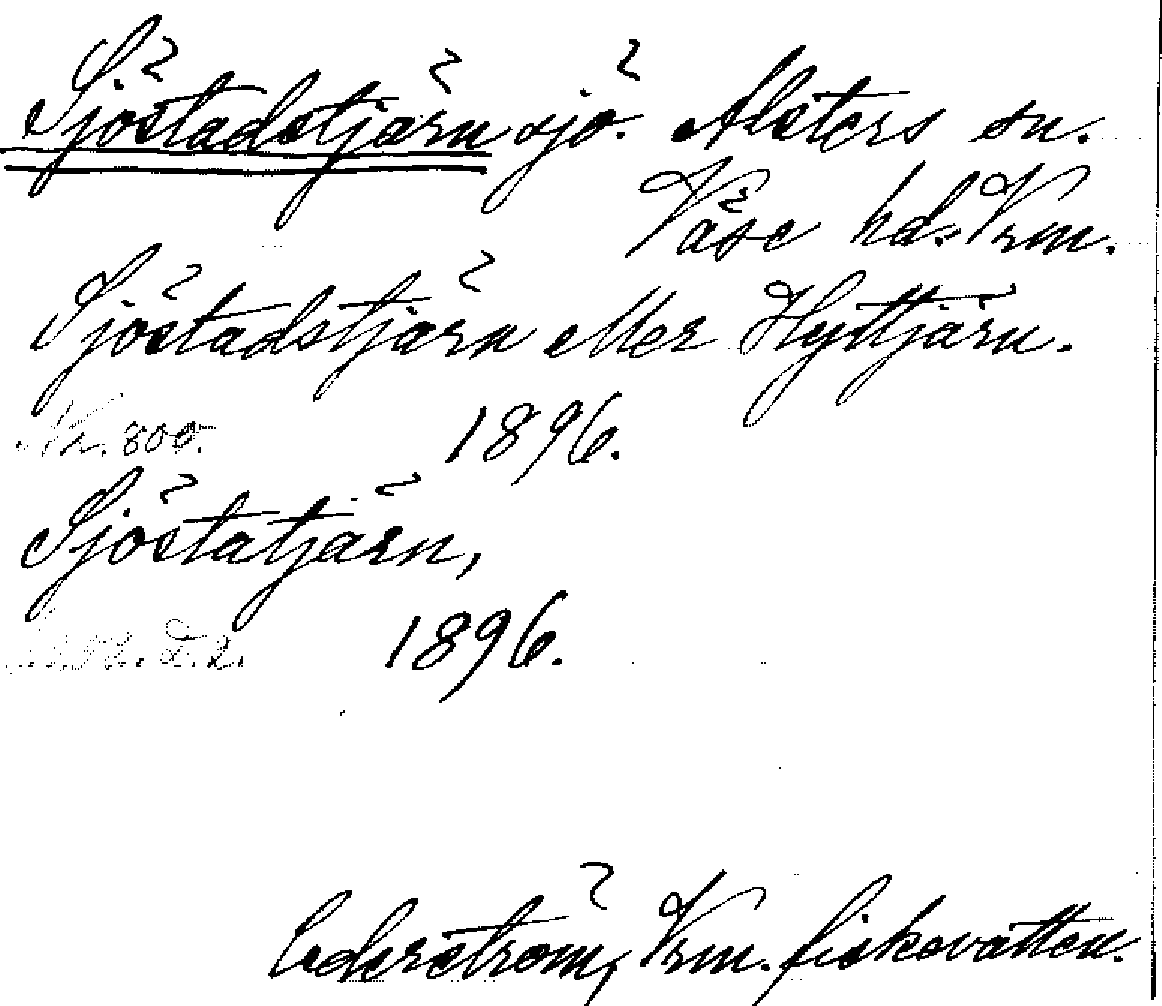 Sjöstadstjärn sjö. Alsters sn.
Väse hd. Vrm.
Sjöstadstjärn eller Hyttjärn.
Nr. 800. 1896.
Sjöstatjärn,
1896.
Cederström, Vrm. fiskevatten.